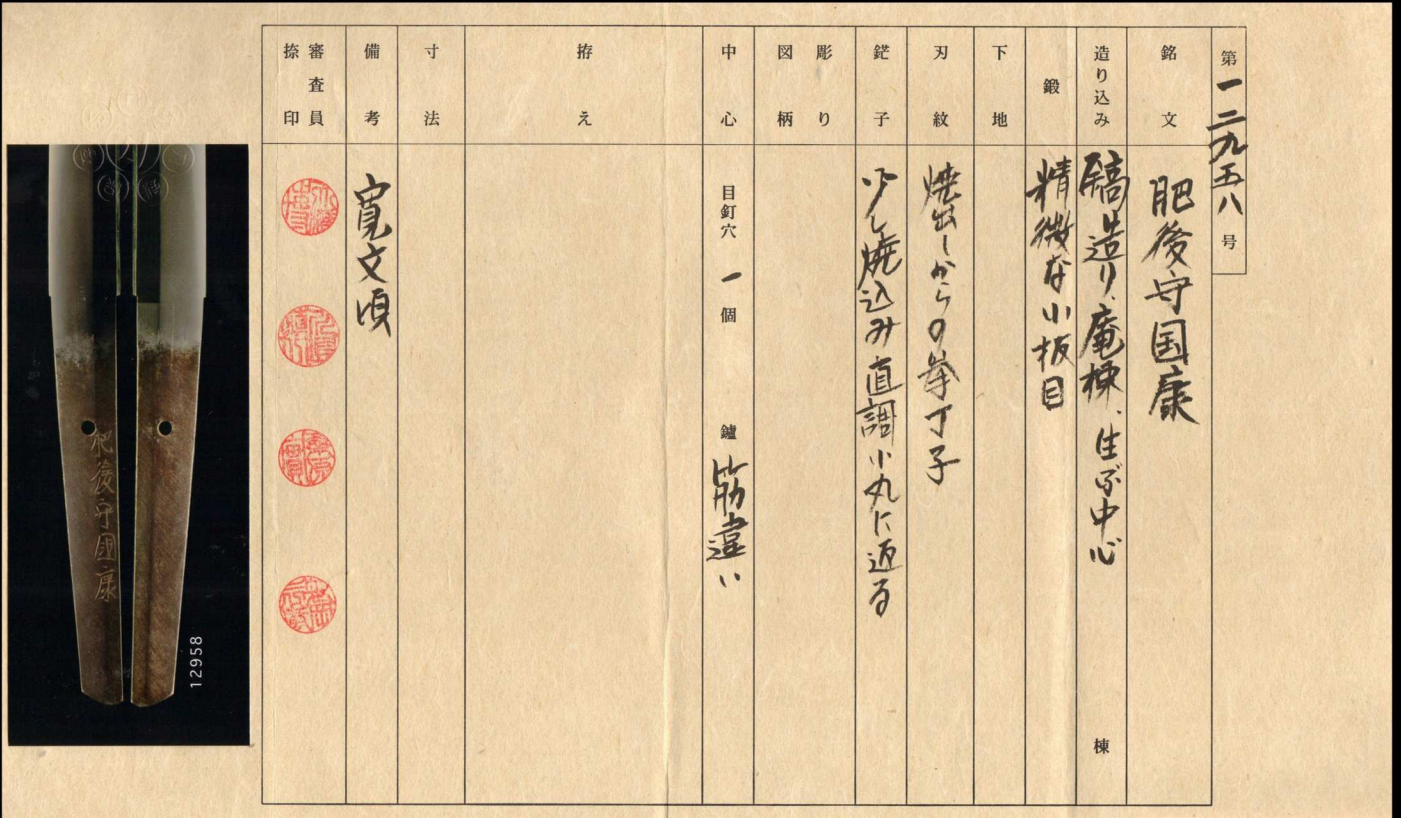 第一二九五八号
銘文 肥後守国康
造り込み 鎬造り、庵棟、生ぶ中心 棟
鍛 精微な小板目
下地
刃紋 焼出しからの拳丁子
鋩子 少し焼込み直調小丸に返る
彫り図柄
中心 目釘穴 一個 鑢 筋違い
拵え
寸法
備考 寛文頃
審査員捺印
肥後守國康
12958